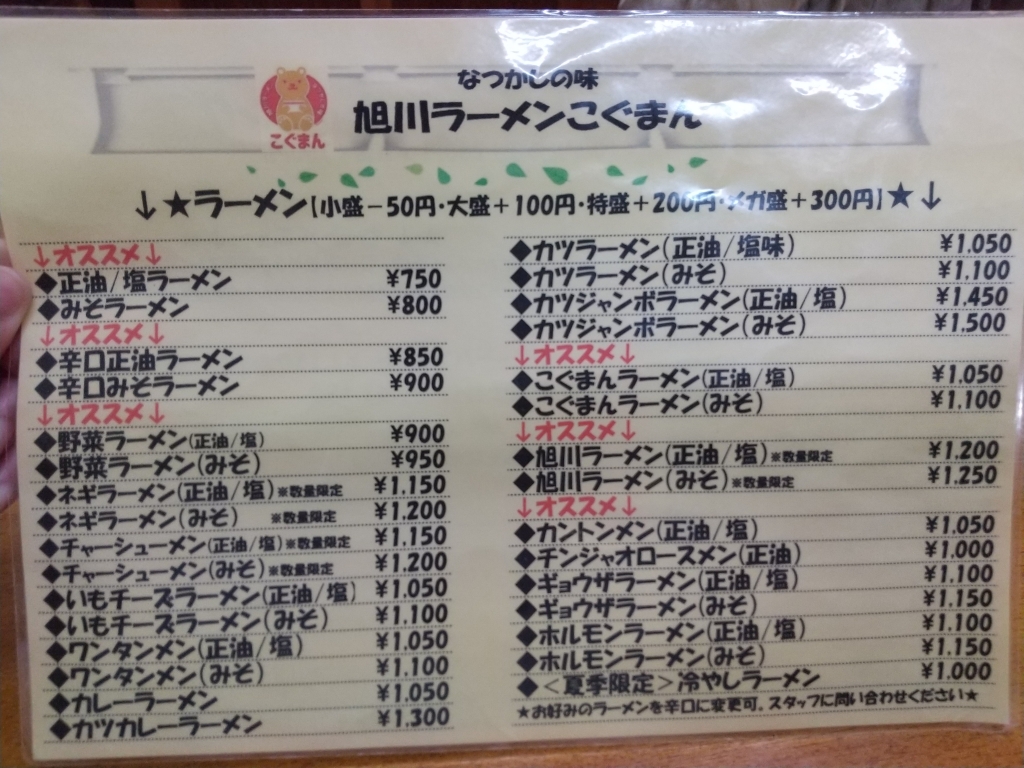 なつかしの味
旭川ラーメンこぐまん
こぐまん
↓★ラーメン【小盛－50円・大盛＋100円・特盛＋200円・メガ盛＋300円】★↓
↓オススメ↓
◆正油/塩ラーメン ¥750
◆みそラーメン ¥800
↓オススメ↓
◆辛口正油ラーメン ¥850
◆辛口みそラーメン ¥900
↓オススメ↓
◆野菜ラーメン(正油/塩) ¥900
◆野菜ラーメン(みそ) ¥950
◆ネギラーメン(正油/塩)※数量限定 ¥1.150
◆ネギラーメン(みそ) ※数量限定 ¥1.200
◆チャーシューメン(正油/塩)※数量限定 ¥1.150
◆チャーシューメン(みそ)※数量限定 ¥1.200
◆いもチーズラーメン(正油/塩) ¥1.050
◆いもチーズラーメン(みそ) ¥1.100
◆ワンタンメン(正油/塩) ¥1.050
◆ワンタンメン(みそ) ¥1.100
◆カレーラーメン ¥1.050
◆カツカレーラーメン ¥1.300
◆カツラーメン(正油/塩味) ¥1.050
◆カツラーメン(みそ) ¥1.100
◆カツジャンボラーメン(正油/塩) ¥1.450
◆カツジャンボラーメン(みそ) ¥1.500
↓オススメ↓
◆こぐまんラーメン(正油/塩) ¥1.050
◆こぐまんラーメン(みそ) ¥1.100
↓オススメ↓
◆旭川ラーメン(正油/塩)※数量限定 ¥1.200
◆旭川ラーメン(みそ)※数量限定 ¥1.250
↓オススメ↓
◆カントンメン(正油/塩) ¥1.050
◆チンジャオロースメン(正油) ¥1.000
◆ギョウザラーメン(正油/塩) ¥1.100
◆ギョウザラーメン(みそ) ¥1.150
◆ホルモンラーメン(正油/塩) ¥1.100
◆ホルモンラーメン(みそ) ¥1.150
◆＜夏季限定＞冷やしラーメン ¥1.000
★お好みのラーメンを辛口に変更可。スタッフに問い合わせください★